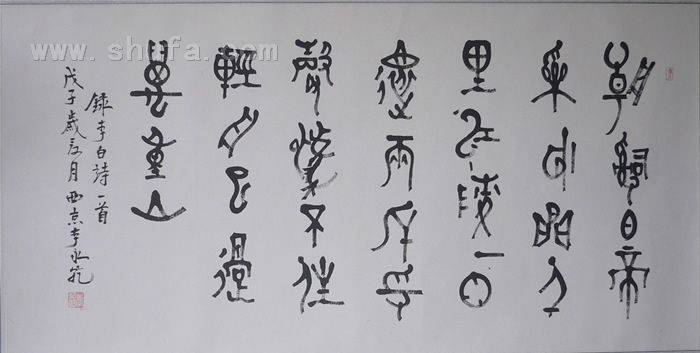 朝辭白帝
采云間千
里江陵一日
還兩岸猿
聲啼不住
輕舟已過
萬重山
錄李白詩一首
戊子歲月西京李
www.shufa.com